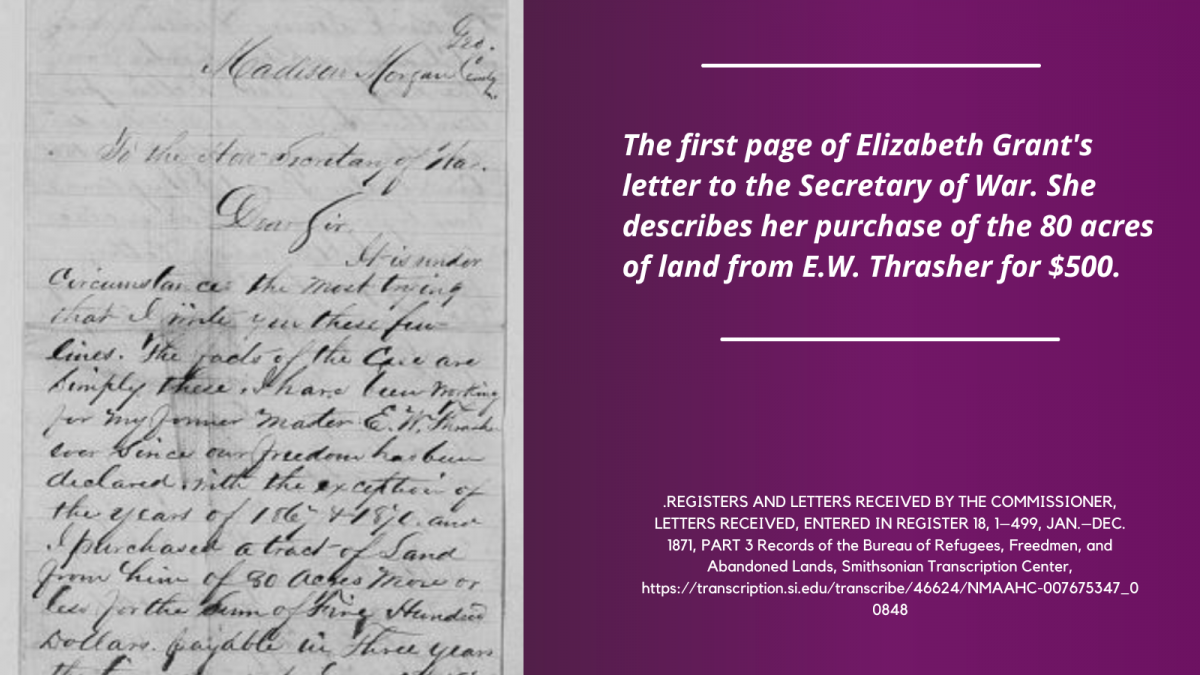 Geo.
Madison Morgan County
To the Hon Secretary of War.
Dear Sir
It is under
Circumstances the most trying
that I write you these few
lines. The facts of the Case are
simply these. I have been working
for my former Master E.W. Thrasher
ever since our freedom has been
declared with the exception of
the years of 1867 & 1870. and
I purchased a tract of Land
from him of 80 Acres more or
less for the sum of Five Hundred
Dollars. payable in three years
The first page of Elizabeth Grant's
letter to the Secretary of War. She
describes her purchase of the 80 acres
of land from E.W. Thrasher for $500.
.REGISTERS AND LETTERS RECEIVED BY THE COMMISSIONER,
LETTERS RECEIVED, ENTERED IN REGISTER 18, 1–499, JAN.–DEC.
1871, PART 3 Records of the Bureau of Refugees, Freedmen, and
Abandoned Lands, Smithsonian Transcription Center,
https://transcription.si.edu/transcribe/46624/NMAAHC-007675347_0
0848